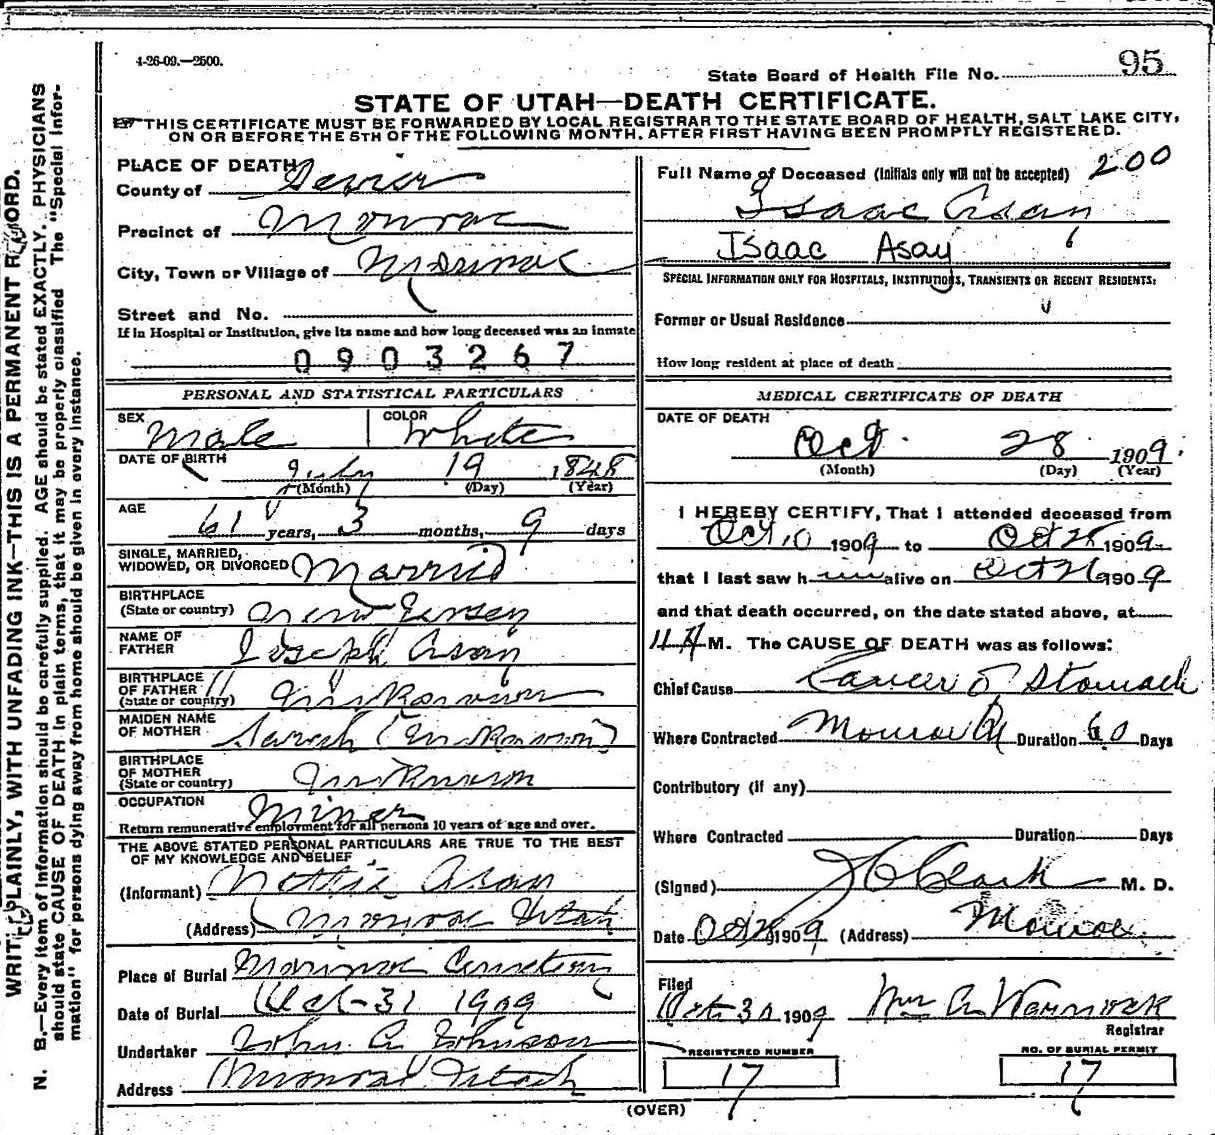 4-26-09.—2500.
State Board of Health File No. 95
STATE OF UTAH—DEATH CERTIFICATE.
THIS CERTIFICATE MUST BE FORWARDED BY LOCAL REGISTRAR TO THE STATE BOARD OF HEALTH, SALT LAKE CITY,
ON OR BEFORE THE 5TH OF THE FOLLOWING MONTH, AFTER FIRST HAVING BEEN PROMPTLY REGISTERED.
PLACE OF DEATH
County of Sevier
Precinct of Monroe
City, Town or Village of Monroe
Street and No.
If in Hospital or Institution, give its name and how long deceased was an inmate
0903267
Full Name of Deceased (Initials only will not be accepted) 200
Isaac Asay
Isaac Asay
SPECIAL INFORMATION ONLY FOR HOSPITALS, INSTITUTIONS, TRANSIENTS OR RECENT RESIDENTS:
Former or Usual Residence
How long resident at place of death
PERSONAL AND STATISTICAL PARTICULARS
SEX Male COLOR White
DATE OF BIRTH July 19 1848
(Month) (Day) (Year)
AGE 61 years, 3 months, 9 days
SINGLE, MARRIED,
WIDOWED, OR DIVORCED Married
BIRTHPLACE
(State or country) New Jersey
NAME OF
FATHER Joseph Asay
BIRTHPLACE
OF FATHER
(State or country) Unknown
MAIDEN NAME
OF MOTHER Sarah (Unknown)
BIRTHPLACE
OF MOTHER
(State or country) Unknown
OCCUPATION Miner
Return remunerative employment for all persons 10 years of age and over.
THE ABOVE STATED PERSONAL PARTICULARS ARE TRUE TO THE BEST
OF MY KNOWLEDGE AND BELIEF
(Informant) Nettie Asay
(Address) Monroe Utah
Place of Burial Monroe Cemetery
Date of Burial Oct-31 1909
Undertaker John A Johnson
Address Monroe Utah
MEDICAL CERTIFICATE OF DEATH
DATE OF DEATH
Oct. 28 1909.
(Month) (Day) (Year)
I HEREBY CERTIFY, That I attended deceased from
Oct 10 1909 to Oct 28 1909
that I last saw him alive on Oct 26 1909
and that death occurred, on the date stated above, at
M. The CAUSE OF DEATH was as follows:
Chief Cause Cancer of Stomach
Where Contracted Monroe Duration 60 Days
Contributory (if any)
Where Contracted Duration Days
(Signed) Clark M. D.
Date Oct 28 1909 (Address) Monroe
Filed
Oct 30 1909 Wm A Warnock
Registrar
REGISTERED NUMBER
17
NO. OF BURIAL PERMIT
17
(OVER)
WRITE PLAINLY, WITH UNFADING INK—THIS IS A PERMANENT RECORD.
N. B.—Every item of information should be carefully supplied. AGE should be stated EXACTLY. PHYSICIANS
should state CAUSE OF DEATH in plain terms, that it may be properly classified The "Special Infor-
mation" for persons dying away from home should be given in every instance.